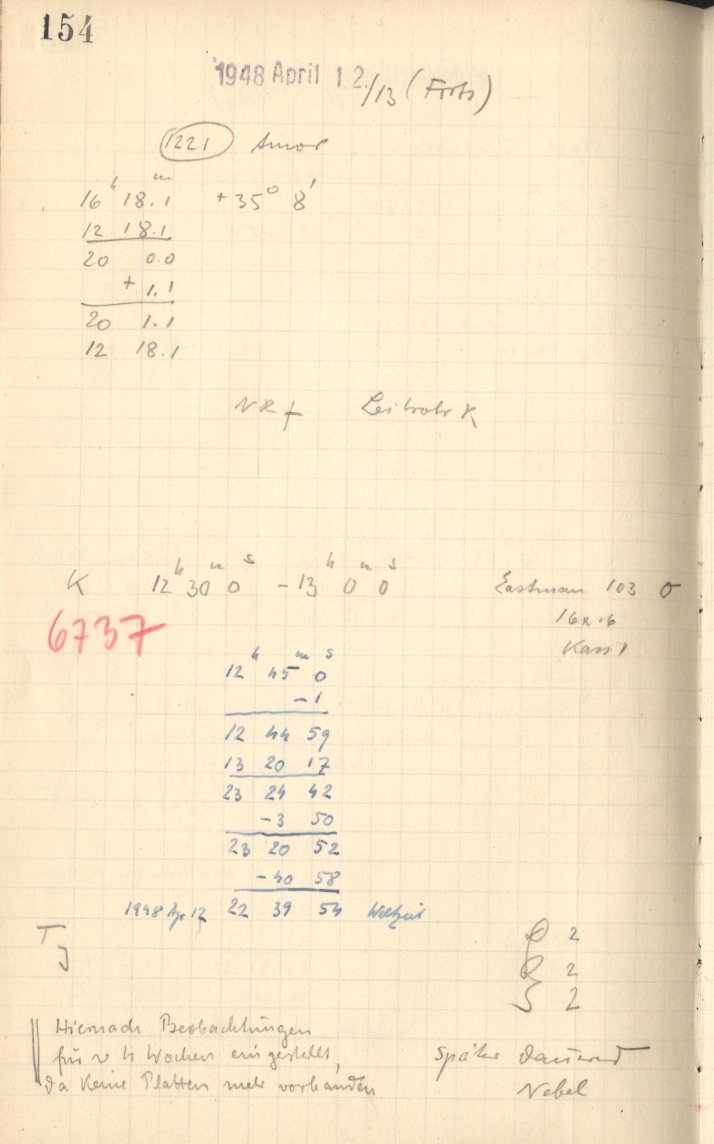 154
1948 April 12./13 (Forts)
1221 Amor
h m
16 18.1 +35° 8'
12 18.1
20 0.0
+ 1.1
20 1.1
12 18.1
Leitrohr K
h m s h m s
K 12 30 0 - 13 0 0 Eastman 103 O
6737 16x16
Kass 1
h m s
12 45 0
- 1
12 44 59
13 20 17
23 24 42
- 3 50
23 20 52
- 40 58
1948 Apr 12, 22 39 54 Weltzeit
T 2
J 2
2
Hiernach Beobachtungen
für ~ 4 Wochen eingestellt, später dauernd
da keine Platten mehr vorhanden Nebel